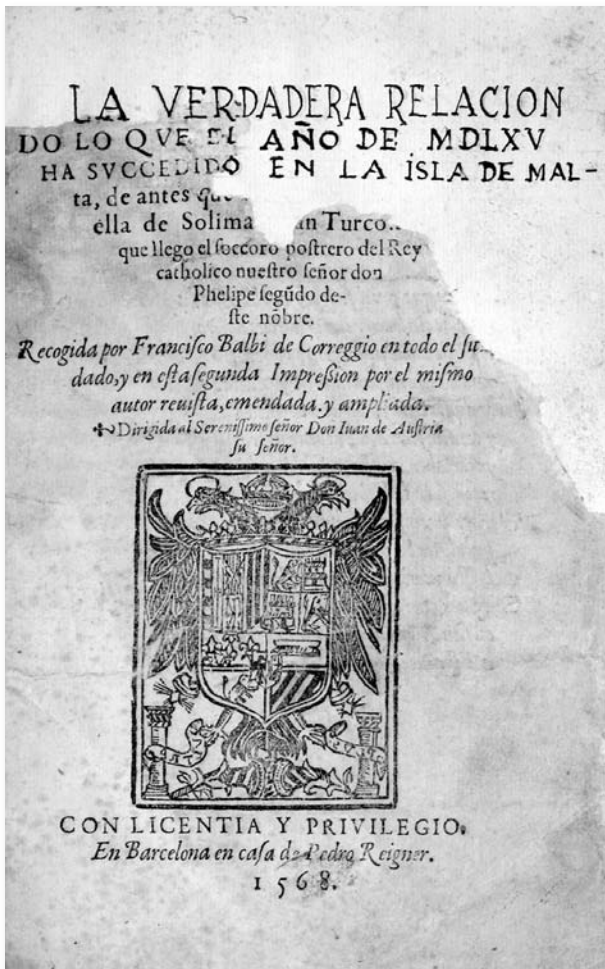 LA VERDADERA RELACION
DO LO QVE EL AÑO DE MDLXV
HA SVCCEDIDO EN LA ISLA DE MAL-
ta, de antes que
ella de Solima an Turco..
que llego el soccoro postrero del Rey
catholico nuestro señor don
Phelipe segũdo de-
ste nõbre.
Recogida por Francisco Balbi de Correggio en todo el
dado, y en esta segunda Impression por el mismo
autor reuista, emendada. y ampliada.
Dirigida al Serenissimo señor Don Iuan de Austria
su señor.
CON LICENTIA Y PRIVILEGIO.
En Barcelona en casa de Pedro Reigner.
1568.